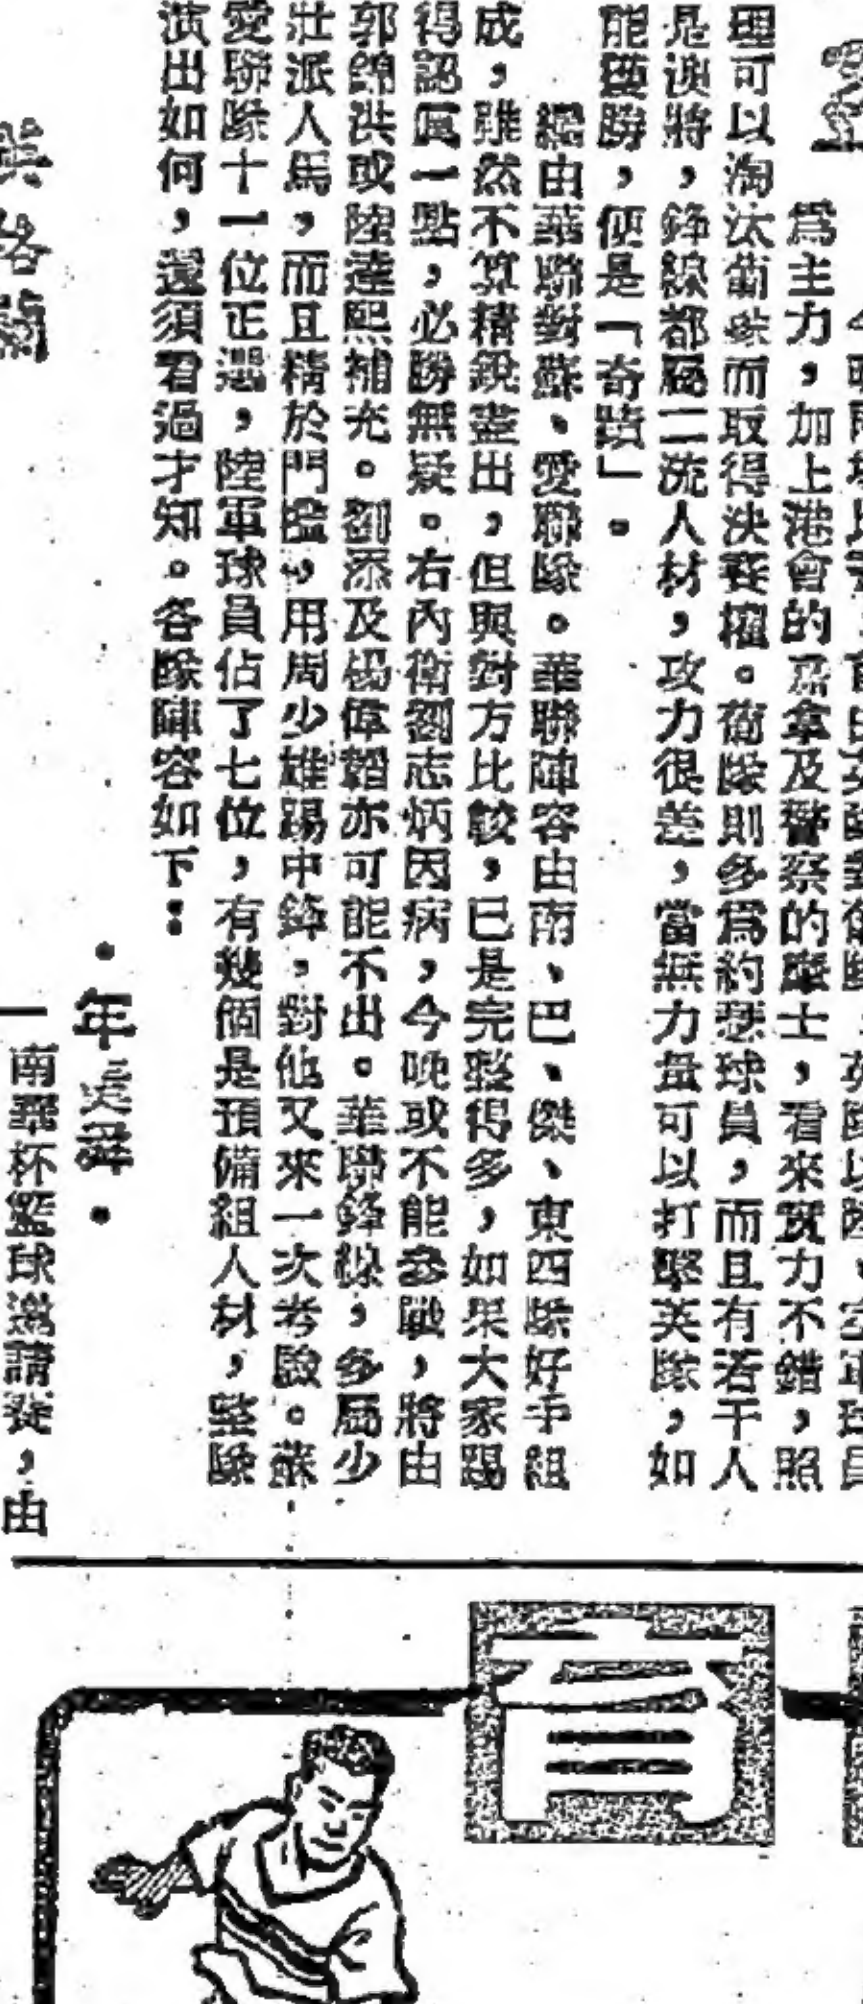 為主力,加上港會的 拿及警察的 士,看來實力不錯,照
理可以淘汰葡隊而取得決賽權。葡隊則多爲約 球員,而且有若干人
是澳將,鋒線都屬二流人材,攻力很差,當無力量可以打擊英隊,如
能獲勝,便是「奇蹟」。
繼由華聯對蘇、愛聯隊。華聯陣容由南、巴、傑、東四隊好手組
成,雖然不算精銳盡出,但與對方比較,已是完整得多,如果大家踢
得認眞一點,必勝無疑。右內衛劉志炳因病,今晚或不能參戰,將由
郭錦洪或陸達熙補充。劉添及楊偉韜亦可能不出。華聯鋒線,多屬少
壯派人馬,而且精於門檻,用周少雄踢中鋒,對他又來一次考驗。蘇
愛聯隊十一位正選,陸軍球員佔了七位,有幾個是預備組人材,整隊
演出如何,還須看過才知。各隊陣容如下:
•年 •
南華杯籃球邀請賽,由
英格蘭
育